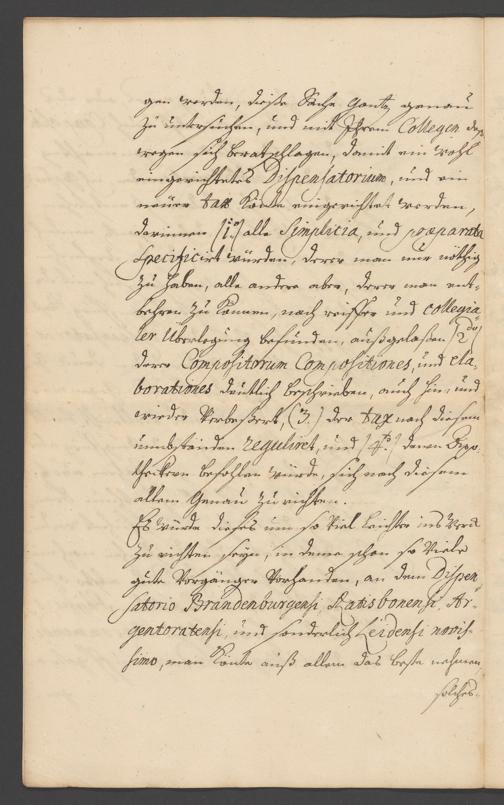 gen werden, diese Sache gantz genau
zu untersuchen, und mit Ihren Collegen deß
wegen sich berathschlagen, damit ein wohl
eingerichtetes Dispensatorium, und ein
neüer tax könte eingerichtet werden,
darinnen (1º) alle Simplicia, und præparata
specificirt würden, derer man nur nöthig
zu haben, alle andere aber, derer man ent-
behren zu können, nach reiffer und collegia-
ler Überlegung befunden, außgelaßen (2do)
derer Compositorum Compositiones, und ela-
borationes deütlich beschrieben, auch hin, und
wieder verbeßert, (3.) der tax nach diesen
umbständen reguliret, und (4to.) denen Apo-
theckern befohlen würde, sich nach diesem
allem genau zu richten.
Es würde dieses um so viel leichter ins Werck
zu richten seyn, in deme schon so viele
gute Vorgänger vorhanden, an dem Dispen
satorio Brandenburgensi, Ratisbonensi, Ar-
gentoratensi, und sonderlich Leidensi novis-
simo, man könte auß allem das beste nehmen,
solches